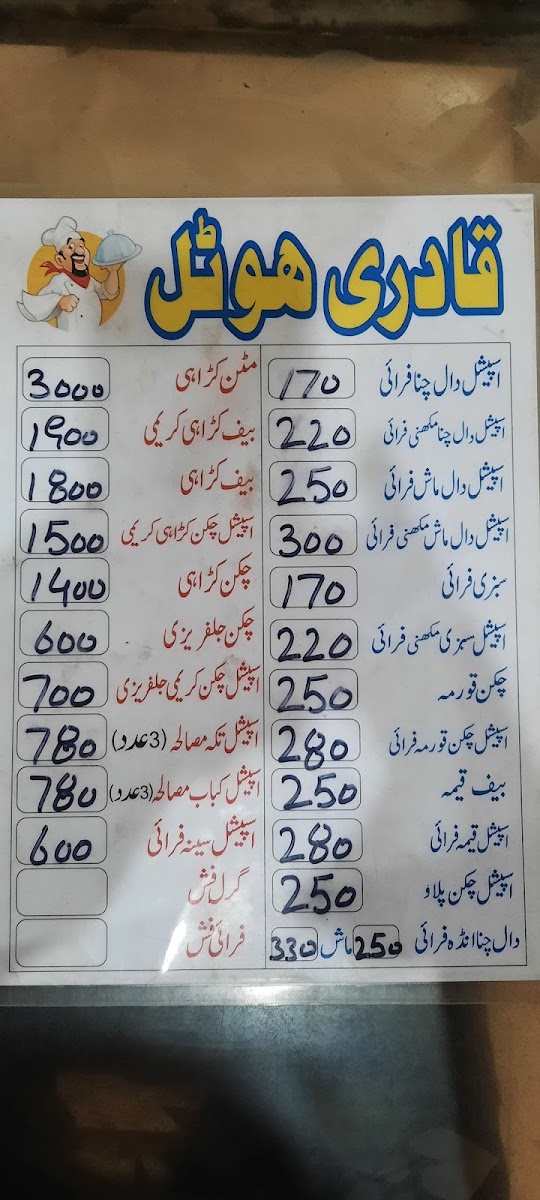 قادری ھوٹل
اسپیشل دال چنا فرائی 170
اسپیشل دال چنا مکھنی فرائی 220
اسپیشل دال ماش فرائی 250
اسپیشل دال ماش مکھنی فرائی 300
سبزی فرائی 170
اسپیشل سبزی مکھنی فرائی 220
چکن قورمہ 250
اسپیشل چکن قورمہ فرائی 280
بیف قیمہ 250
اسپیشل قیمہ فرائی 280
اسپیشل چکن پلاو 250
دال چنا انڈہ فرائی 250 ماش 330
مٹن کڑاہی 3000
بیف کڑاہی کریمی 1900
بیف کڑاہی 1800
اسپیشل چکن کڑاہی کریمی 1500
چکن کڑاہی 1400
چکن جلفریزی 600
اسپیشل چکن کریمی جلفریزی 700
اسپیشل تکہ مصالحہ (3 عدد) 780
اسپیشل کباب مصالحہ (3 عدد) 780
اسپیشل سینہ فرائی 600
گرل فش
فرائی فش